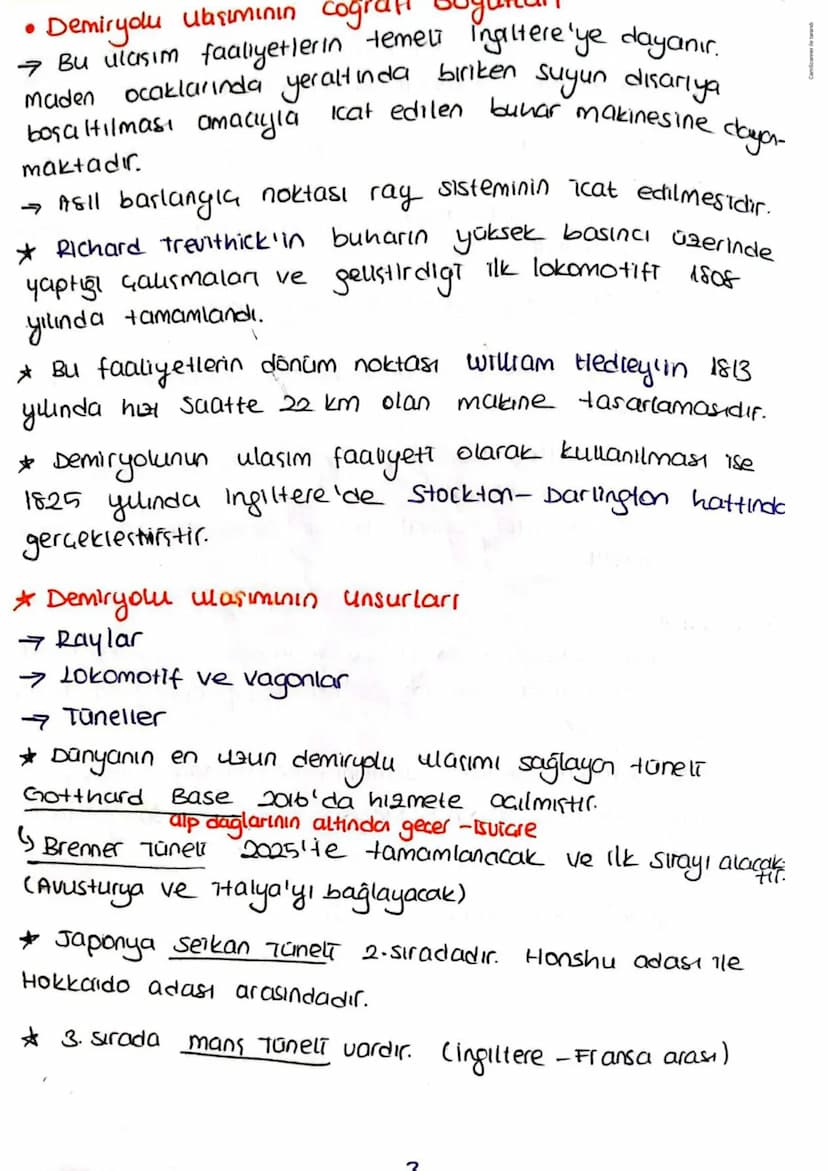 • Demiryolu Ulaşımının Coğrafi Boyutları
→ Bu ulaşım faaliyetlerin temeli İngiltere'ye dayanır.
Maden ocaklarında yeraltında biriken suyun dışarıya
boşaltılması amacıyla icat edilen buhar makinesine dayan-
maktadır.
→ Asıl başlangıç noktası ray sisteminin icat edilmesidir.
★ Richard Trevithick'in buharın yüksek basıncı üzerinde
yaptığı çalışmaları ve geliştirdiği ilk lokomotifi 1808
yılında tamamlandı.
★ Bu faaliyetlerin dönüm noktası William Hedley'in 1813
yılında hızı saatte 22 km olan makine tasarlamasıdır.
★ Demiryolunun ulaşım faaliyeti olarak kullanılması ise
1825 yılında İngiltere'de Stockton- Darlington hattında
gerçekleştiriştir.
★ Demiryolu ulaşımının unsurları
→ Raylar
→ Lokomotif ve vagonlar
→ Tüneller
★ Dünyanın en uzun demiryolu ulaşımı sağlayan tüneli
Gotthard Base 2016'da hizmete açılmıştır.
alp dağlarının altından geçer -İsviçre
↳ Brenner Tüneli 2025'te tamamlanacak ve ilk sırayı alacak
tır.
(Avusturya ve İtalya'yı bağlayacak)
★ Japonya Seikan Tüneli 2.sıradadır. Honshu adası ile
Hokkaido adası arasındadır.
★ 3. sırada manş Tüneli vardır. (İngiltere - Fransa arası)